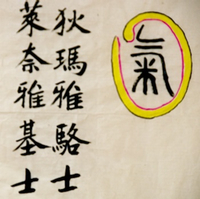 氣
狄瑪雅駱士
萊奈雅基士